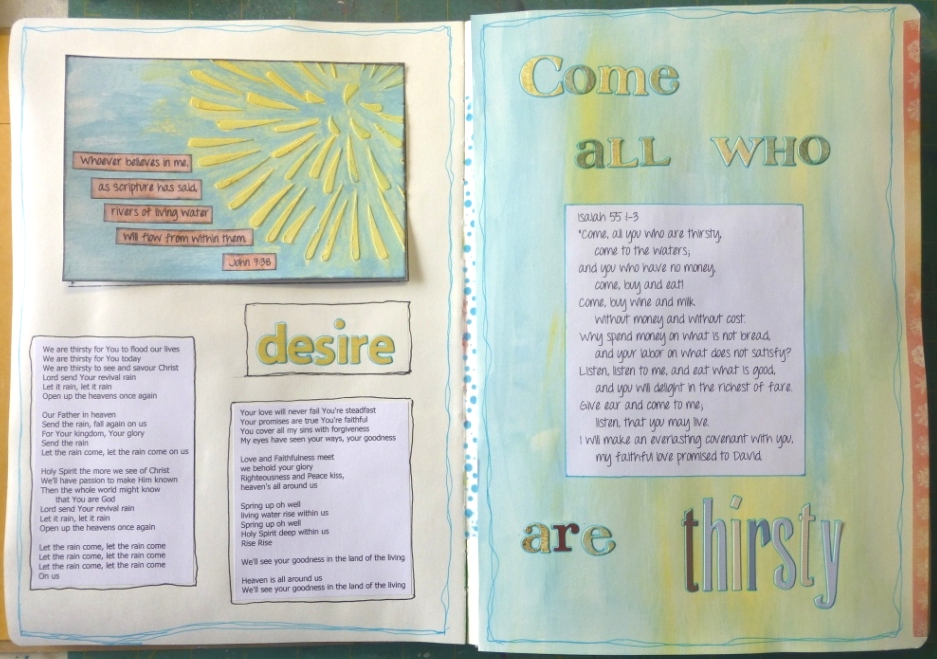 Whoever believes in me,
as scripture has said,
rivers of living water
will flow from within them.
John 7:38
desire
We are thirsty for You to flood our lives
We are thirsty for You today
We are thirsty to see and savour Christ
Lord send Your revival rain
Let it rain, let it rain
Open up the heavens once again
Our Father in heaven
Send the rain, fall again on us
For Your kingdom, Your glory
Send the rain
Let the rain come, let the rain come on us
Holy Spirit the more we see of Christ
We'll have passion to make Him known
Then the whole world might know
that You are God
Lord send Your revival rain
Let it rain, let it rain
Open up the heavens once again
Let the rain come, let the rain come
Let the rain come, let the rain come
Let the rain come, let the rain come
On us
Your love will never fail You're steadfast
Your promises are true You're faithful
You cover all my sins with forgiveness
My eyes have seen your ways, your goodness
Love and Faithfulness meet
we behold your glory
Righteousness and Peace kiss,
heaven's all around us
Spring up oh well
living water rise within us
Spring up oh well
Holy Spirit deep within us
Rise Rise
We'll see your goodness in the land of the living
Heaven is all around us
We'll see your goodness in the land of the living
Come
aLL WHO
Isaiah 55:1-3
"Come, all you who are thirsty,
come to the waters;
and you who have no money,
come, buy and eat!
Come, buy wine and milk
without money and without cost.
Why spend money on what is not bread,
and your labor on what does not satisfy?
Listen, listen to me, and eat what is good,
and you will delight in the richest of fare.
Give ear and come to me;
listen, that you may live.
I will make an everlasting covenant with you,
my faithful love promised to David.
are thirsty